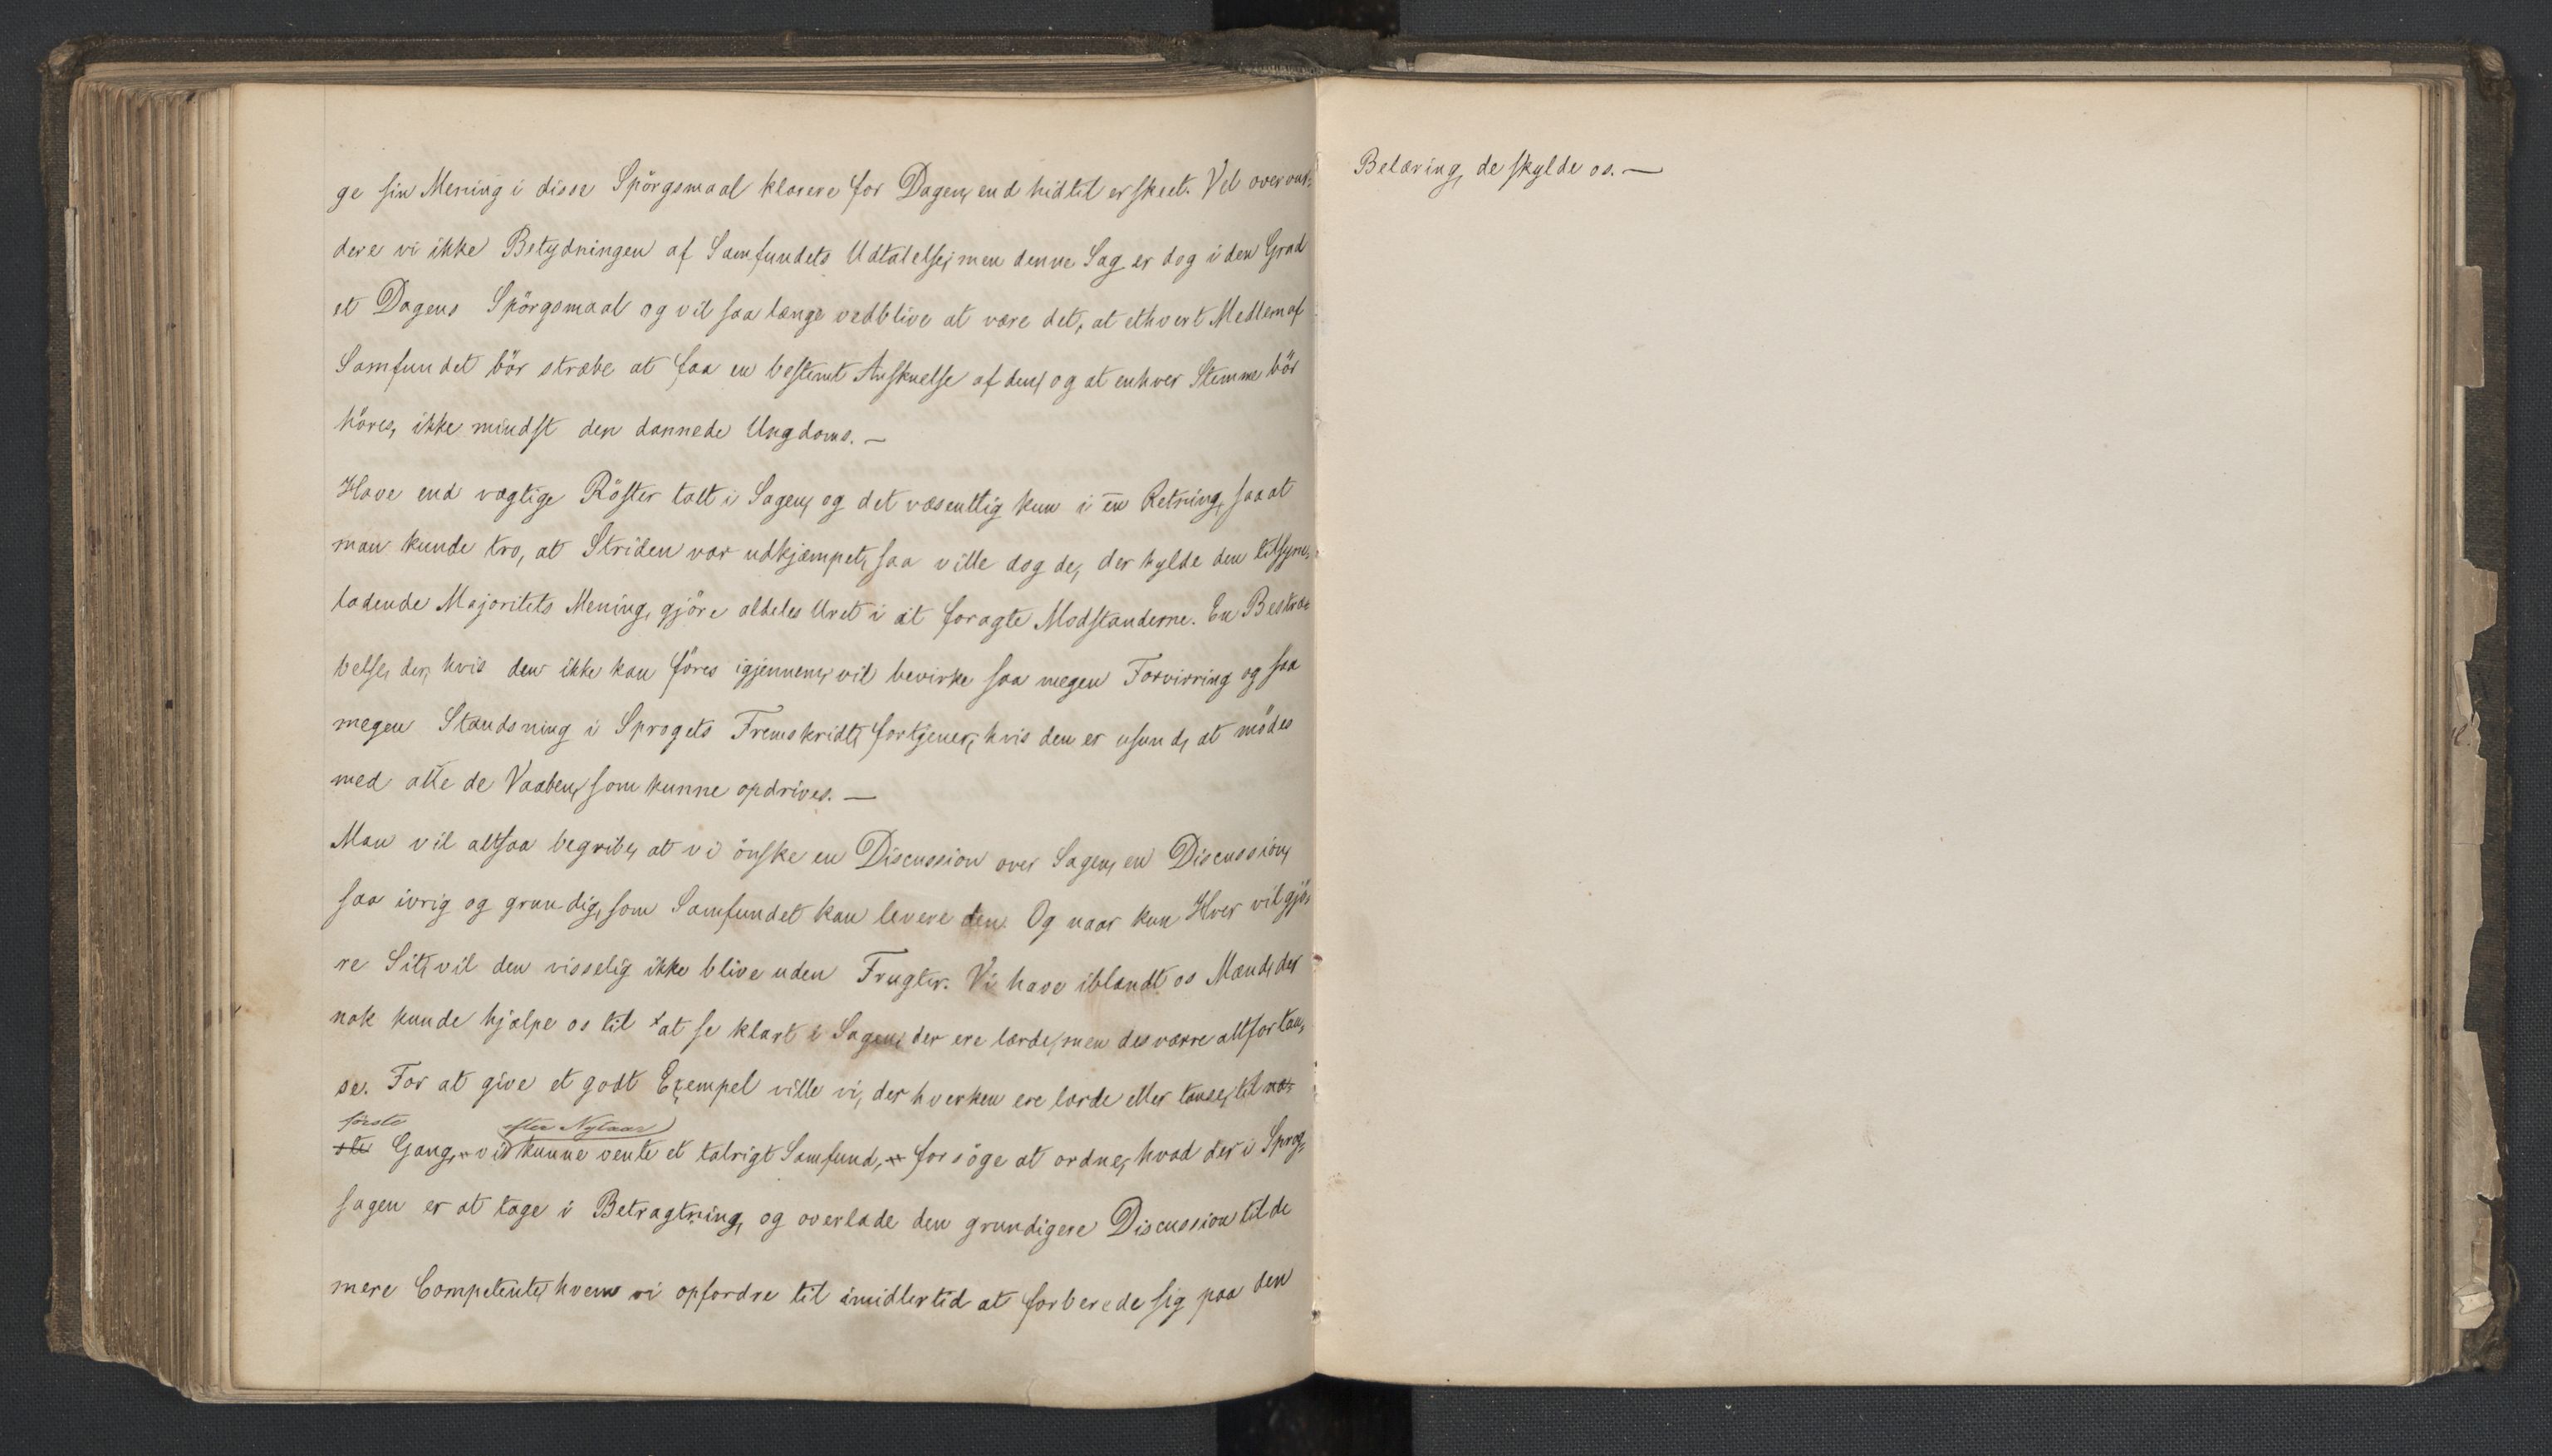 ge sin Mening i disse Spörgsmaal klarere for Dagen, end hidtil er skeet. Vel overvur-
dere vi ikke Betydningen af Samfundets Udtalelse, men denne Sag er dog i den Grad
et Dagens Spörgsmaal og vil saa længe vedblive at være det, at ethvert Medlem af
Samfundet bör stræbe at faa en bestemt Anskuelse af den, og at enhver Stemme bör
höres, ikke mindst den dannede Ungdoms. —
Have end vægtige Röster talt i Sagen, og det væsentlig kun i en Retning, saa at
man kunde tro, at Striden var udkjæmpet, saa ville dog de, der hylde den tilsyne-
ladende Majoritets Mening, gjöre aldeles Uret i at foragte Modstanderne. En Bestræ-
belse, der, hvis den ikke kan föres igjennem, vil bevirke saa megen Forvirring og saa
megen Standsning i Sprogets Fremskridt, fortjener, hvis den er usund, at mödes
med alle de Vaaben, som kunne opdrives. —
Man vil altsaa begribe, at vi önske en Discussion over Sagen, en Discussion,
saa ivrig og grundig, som Samfundet kan levere den. Og naar kun Hver vil gjö-
re Sit, vil den visselig ikke blive uden Frugter. Vi have iblandt os Mænd, der
nok kunde hjælpe os til at se klart i Sagen, der ere lærde, men desværre altfor tau-
se. For at give et godt Exempel ville vi, der hverken ere lærde eller tause, til næ-
förste efter Nytaar
ste Gang, vi kunne vente et talrigt Samfund, forsöge at ordne, hvad der i Sprog-
sagen er at tage i Betragtning, og overlade den grundigere Discussion til de
mere Competente, hvem vi opfordre til imidlertid at forberede sig paa den
Belæring, de skylde os. —